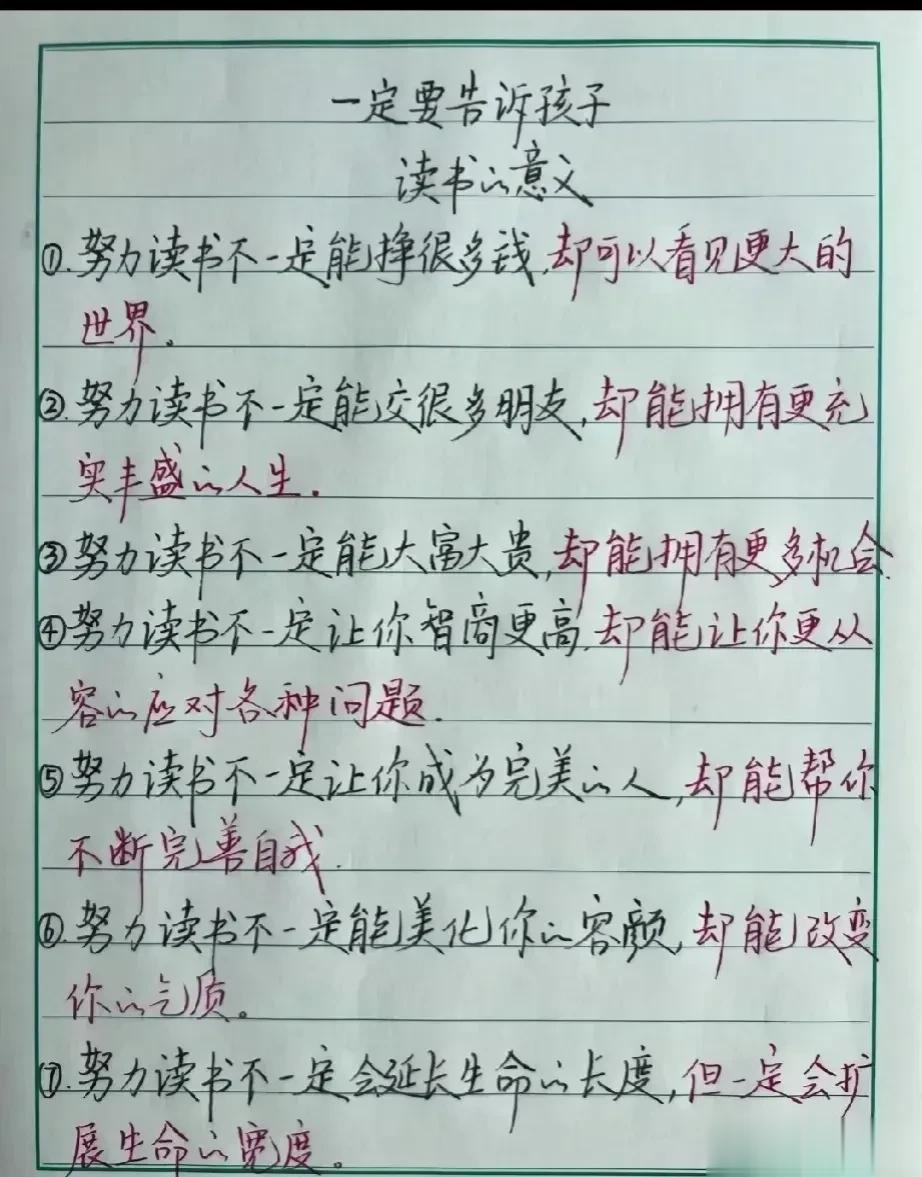 一定要告诉孩子
读书的意义
①.努力读书不一定能挣很多钱,却可以看见更大的
世界。
②.努力读书不一定能交很多朋友,却能拥有更充
实丰盛的人生.
③努力读书不一定能大富大贵,却能拥有更多机会.
④努力读书不一定让你智商更高.却能让你更从
容的应对各种问题.
⑤努力读书不一定让你成为完美的人,却能帮你
不断完善自我.
⑥.努力读书不一定能美化你的容颜,却能改变
你的气质。
⑦.努力读书不一定会延长生命的长度,但一定会扩
展生命的宽度。